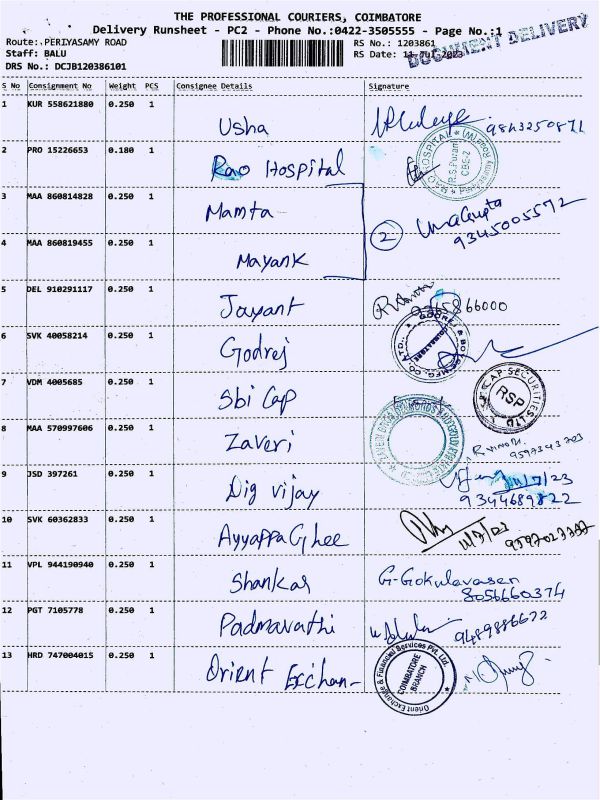 THE PROFESSIONAL COURIERS, COIMBATORE
Delivery Runsheet - PC2 - Phone No.:0422-3505555 - Page No.:1
Route:.PERIYASAMY ROAD RS No.: 1203861
Staff: BALU RS Date: 11-Jul-2023
DOCUMENT DELIVERY
DRS No.: DCJB120386101
S No Consignment No Weight PCS Consignee Details Signature
1 KUR 558621880 0.250 1 Usha 9843250871
2 PRO 15226653 0.180 1 Rao Hospital
RAO HOSPITAL R.S.Puram CBE-2
3 MAA 860814828 0.250 1 Mamta
4 MAA 860819455 0.250 1 Mayank
2 Uma Gupta 9345005572
5 DEL 910291117 0.250 1 Jayant 66000
6 SVK 40058214 0.250 1 Godrej
GODREJ & BOYCE MFG. CO. LTD. COIMBATORE
7 VDM 4005685 0.250 1 Sbi Cap
CAP SECURITIES LTD RSP
8 MAA 570997606 0.250 1 Zaveri
9 JSD 397261 0.250 1 Dig vijay 11/7/23
9344689822
10 SVK 60362833 0.250 1 Ayyappa Ghee
11 VPL 944190940 0.250 1 Shankar G-Gokulavasen
8056660374
12 PGT 7105778 0.250 1 Padmavathi 9489886672
13 HRD 747004015 0.250 1 Orient Exchan
Orient Exchange & Financial Services Pvt. Ltd. COIMBATORE BRANCH